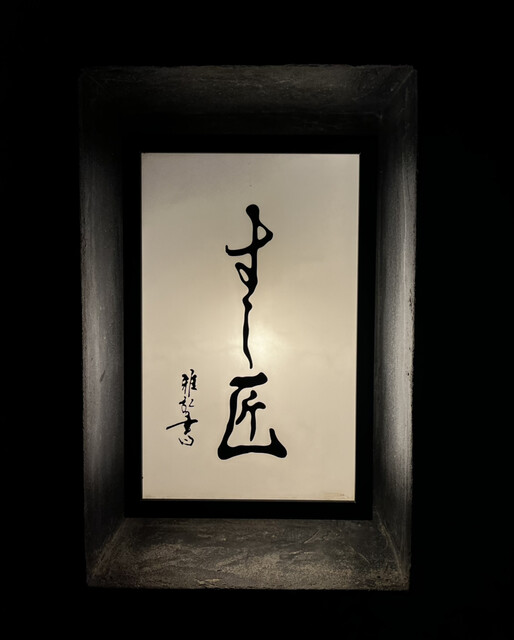 すし匠
雅弘書